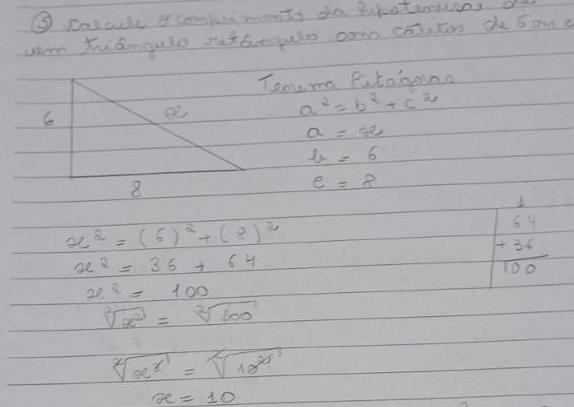 5 Calcule o comprimento da hipotenusa de
um triângulo retângulo com catetos de 6 cm e
Teorema Pitágoras
6
x
8
a² = b² + c²
a = x
b = 6
c = 8
x² = (6)² + (8)²
x² = 36 + 64
x² = 100
²√x² = ²√100
²√x² = ²√10²
x = 10
1
64
+ 36
100